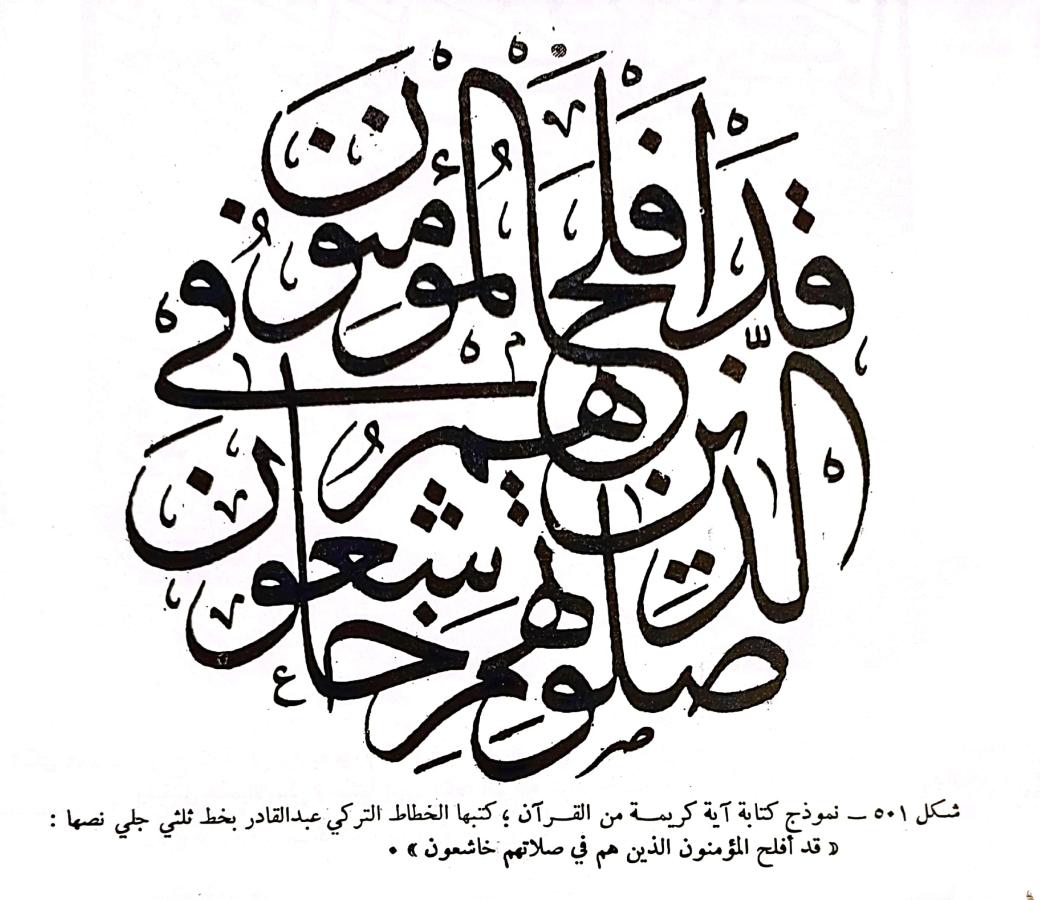 قد افلح المؤمنون
الذين هم في
صلوتهم خاشعون
شكل ٥٠١ ــ نموذج كتابة آية كريمــة من القــرآن ؛ كتبها الخطاط التركي عبدالقادر بخط ثلثي جلي نصها :
« قد أفلح المؤمنون الذين هم في صلاتهم خاشعون » ٠